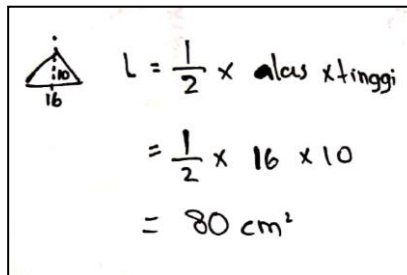 10
16
L = 1/2 x alas x tinggi
= 1/2 x 16 x 10
= 80 cm²